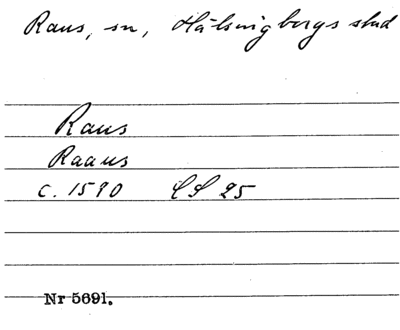 Raus, sn, Hälsingborgs stad
Raus
Raaus
c. 1590 LL 25
Nr 5691.